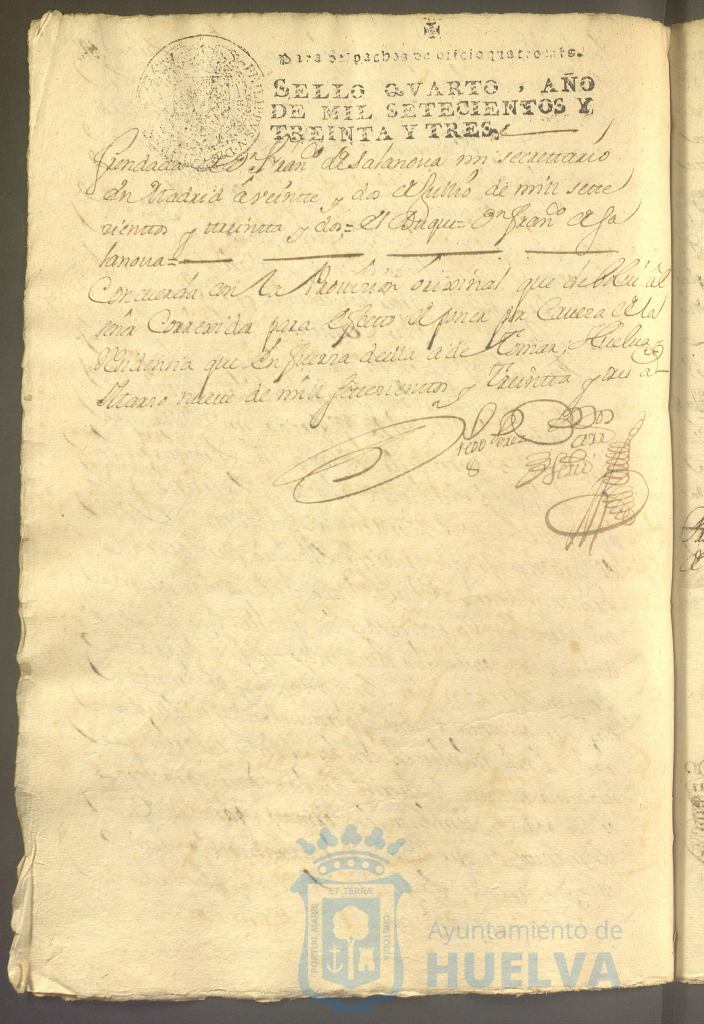 Para despachos de oficio quatro mrs.
SELLO QVARTO, AÑO
DE MIL SETECIENTOS Y
TREINTA Y TRES
frendada de Dn. Franco. de Salanova mi secrettario
en Madrid á veinte y dos de Jullio de mill sette
cientos y treintta y dos = el Duque = Dn. Franco. de Sa
lanova =
Concuerda con la Provision original que debolui al
señor Correxidor para efecto de poner por Caveza de la
Residencia que en fuerza de ella a de Tomar, Huelva
Marzo nueve de mill settecienttos y Treintta y tres a
Perez
PORTUS MARIS
ET TERRÆ
CUSTODIA
Ayuntamiento de
HUELVA